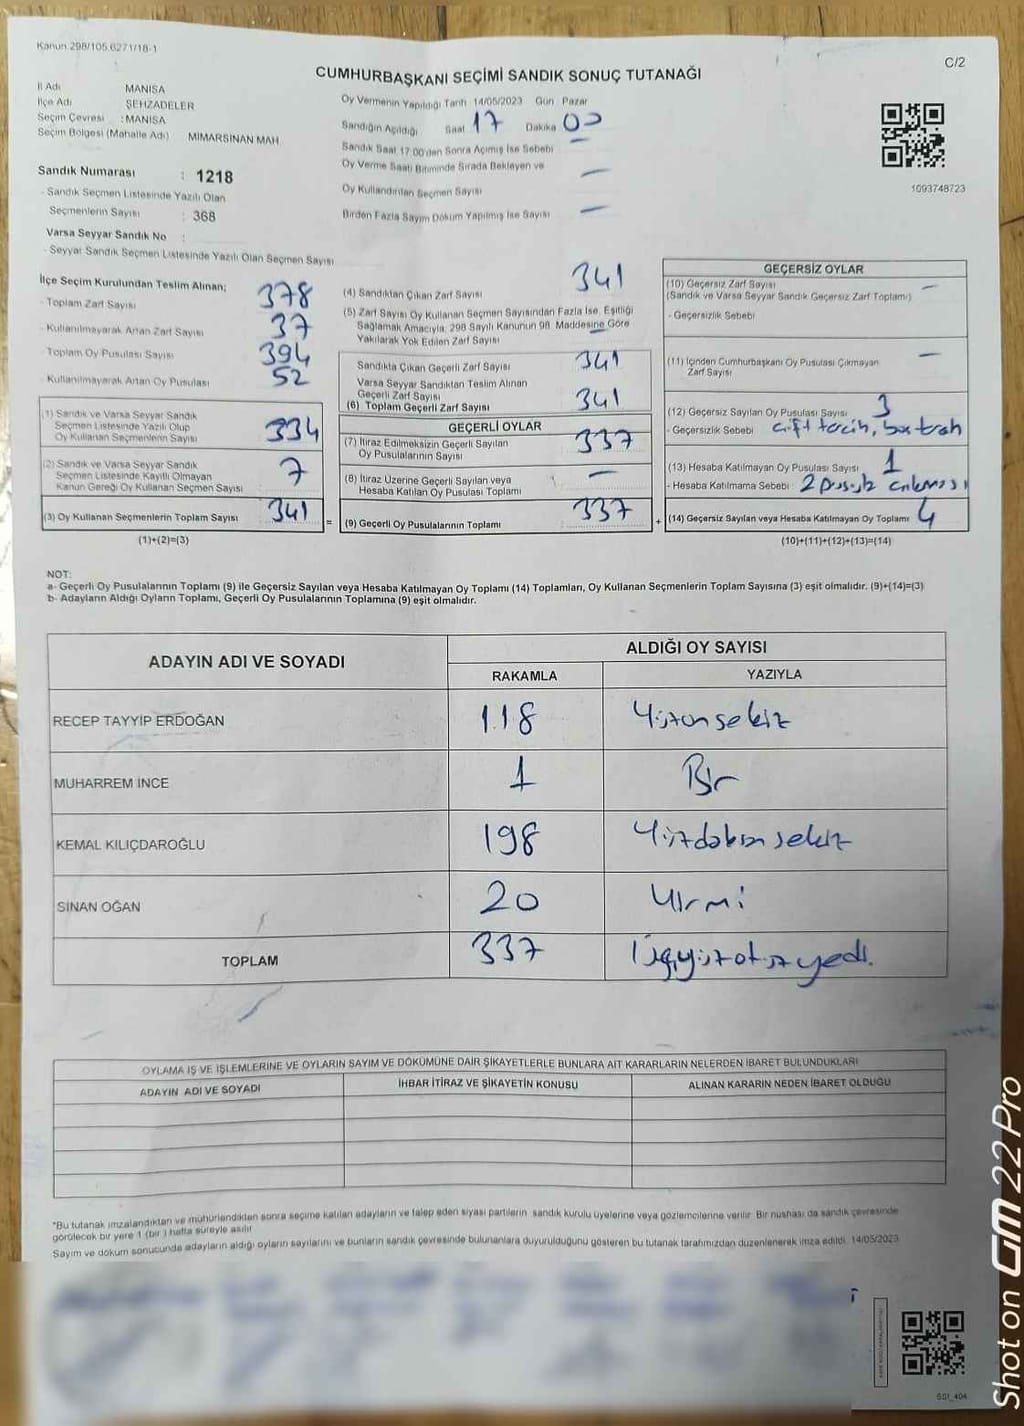 Kanun 298/105.6271/18-1
C/2
CUMHURBAŞKANI SEÇİMİ SANDIK SONUÇ TUTANAĞI
İl Adı MANİSA
İlçe Adı ŞEHZADELER
Seçim Çevresi : MANİSA
Seçim Bölgesi (Mahalle Adı) MİMARSİNAN MAH
Sandık Numarası : 1218
- Sandık Seçmen Listesinde Yazılı Olan
Seçmenlerin Sayısı : 368
Varsa Seyyar Sandık No :
- Seyyar Sandık Seçmen Listesinde Yazılı Olan Seçmen Sayısı
Oy Vermenin Yapıldığı Tarih 14/05/2023 Gün Pazar
Sandığın Açıldığı Saat 17 Dakika 00
Sandık Saat 17:00'den Sonra Açılmış İse Sebebi
Oy Verme Saati Bitiminde Sırada Bekleyen ve
Oy Kullandırılan Seçmen Sayısı –
Birden Fazla Sayım Döküm Yapılmış İse Sayısı –
1093748723
İlçe Seçim Kurulundan Teslim Alınan;
- Toplam Zarf Sayısı 378
- Kullanılmayarak Artan Zarf Sayısı 37
- Toplam Oy Pusulası Sayısı 394
- Kullanılmayarak Artan Oy Pusulası 52
(1) Sandık ve Varsa Seyyar Sandık
Seçmen Listesinde Yazılı Olup
Oy Kullanan Seçmenlerin Sayısı 334
(2) Sandık ve Varsa Seyyar Sandık
Seçmen Listesinde Kayıtlı Olmayan
Kanun Gereği Oy Kullanan Seçmen Sayısı 7
(3) Oy Kullanan Seçmenlerin Toplam Sayısı 341 =
(1)+(2)=(3)
(4) Sandıktan Çıkan Zarf Sayısı 341
(5) Zarf Sayısı Oy Kullanan Seçmen Sayısından Fazla İse, Eşitliği
Sağlamak Amacıyla; 298 Sayılı Kanunun 98. Maddesine Göre
Yakılarak Yok Edilen Zarf Sayısı –
Sandıkta Çıkan Geçerli Zarf Sayısı 341
Varsa Seyyar Sandıktan Teslim Alınan
Geçerli Zarf Sayısı
(6) Toplam Geçerli Zarf Sayısı 341
GEÇERLİ OYLAR
(7) İtiraz Edilmeksizin Geçerli Sayılan
Oy Pusulalarının Sayısı 337
(8) İtiraz Üzerine Geçerli Sayılan veya
Hesaba Katılan Oy Pusulası Toplamı –
(9) Geçerli Oy Pusulalarının Toplamı 337 +
GEÇERSİZ OYLAR
(10) Geçersiz Zarf Sayısı –
(Sandık ve Varsa Seyyar Sandık Geçersiz Zarf Toplamı)
- Geçersizlik Sebebi
(11) İçinden Cumhurbaşkanı Oy Pusulası Çıkmayan
Zarf Sayısı –
(12) Geçersiz Sayılan Oy Pusulası Sayısı 3
- Geçersizlik Sebebi çift tercih, boş
(13) Hesaba Katılmayan Oy Pusulası Sayısı 1
- Hesaba Katılmama Sebebi : 2 pusula çıkması
(14) Geçersiz Sayılan veya Hesaba Katılmayan Oy Toplamı 4
(10)+(11)+(12)+(13)=(14)
NOT:
a- Geçerli Oy Pusulalarının Toplamı (9) ile Geçersiz Sayılan veya Hesaba Katılmayan Oy Toplamı (14) Toplamları, Oy Kullanan Seçmenlerin Toplam Sayısına (3) eşit olmalıdır. (9)+(14)=(3)
b- Adayların Aldığı Oyların Toplamı, Geçerli Oy Pusulalarının Toplamına (9) eşit olmalıdır.
ADAYIN ADI VE SOYADI
ALDIĞI OY SAYISI
RAKAMLA YAZIYLA
RECEP TAYYİP ERDOĞAN 118 Yüzonsekiz
MUHARREM İNCE 1 Bir
KEMAL KILIÇDAROĞLU 198 Yüzdoksansekiz
SİNAN OĞAN 20 Yirmi
TOPLAM 337 Üçyüzotuzyedi.
OYLAMA İŞ VE İŞLEMLERİNE VE OYLARIN SAYIM VE DÖKÜMÜNE DAİR ŞİKAYETLERLE BUNLARA AİT KARARLARIN NELERDEN İBARET BULUNDUKLARI
ADAYIN ADI VE SOYADI İHBAR İTİRAZ VE ŞİKAYETİN KONUSU ALINAN KARARIN NEDEN İBARET OLDUĞU
*Bu tutanak imzalandıktan ve mühürlendikten sonra seçime katılan adayların ve talep eden siyasi partilerin sandık kurulu üyelerine veya gözlemcilerine verilir. Bir nüshası da sandık çevresinde
görülecek bir yere 1 (bir) hafta süreyle asılır
Sayım ve döküm sonucunda adayların aldığı oyların sayılarını ve bunların sandık çevresinde bulunanlara duyurulduğunu gösteren bu tutanak tarafımızdan düzenlenerek imza edildi. 14/05/2023
SS1_404
Shot on GM 22 Pro